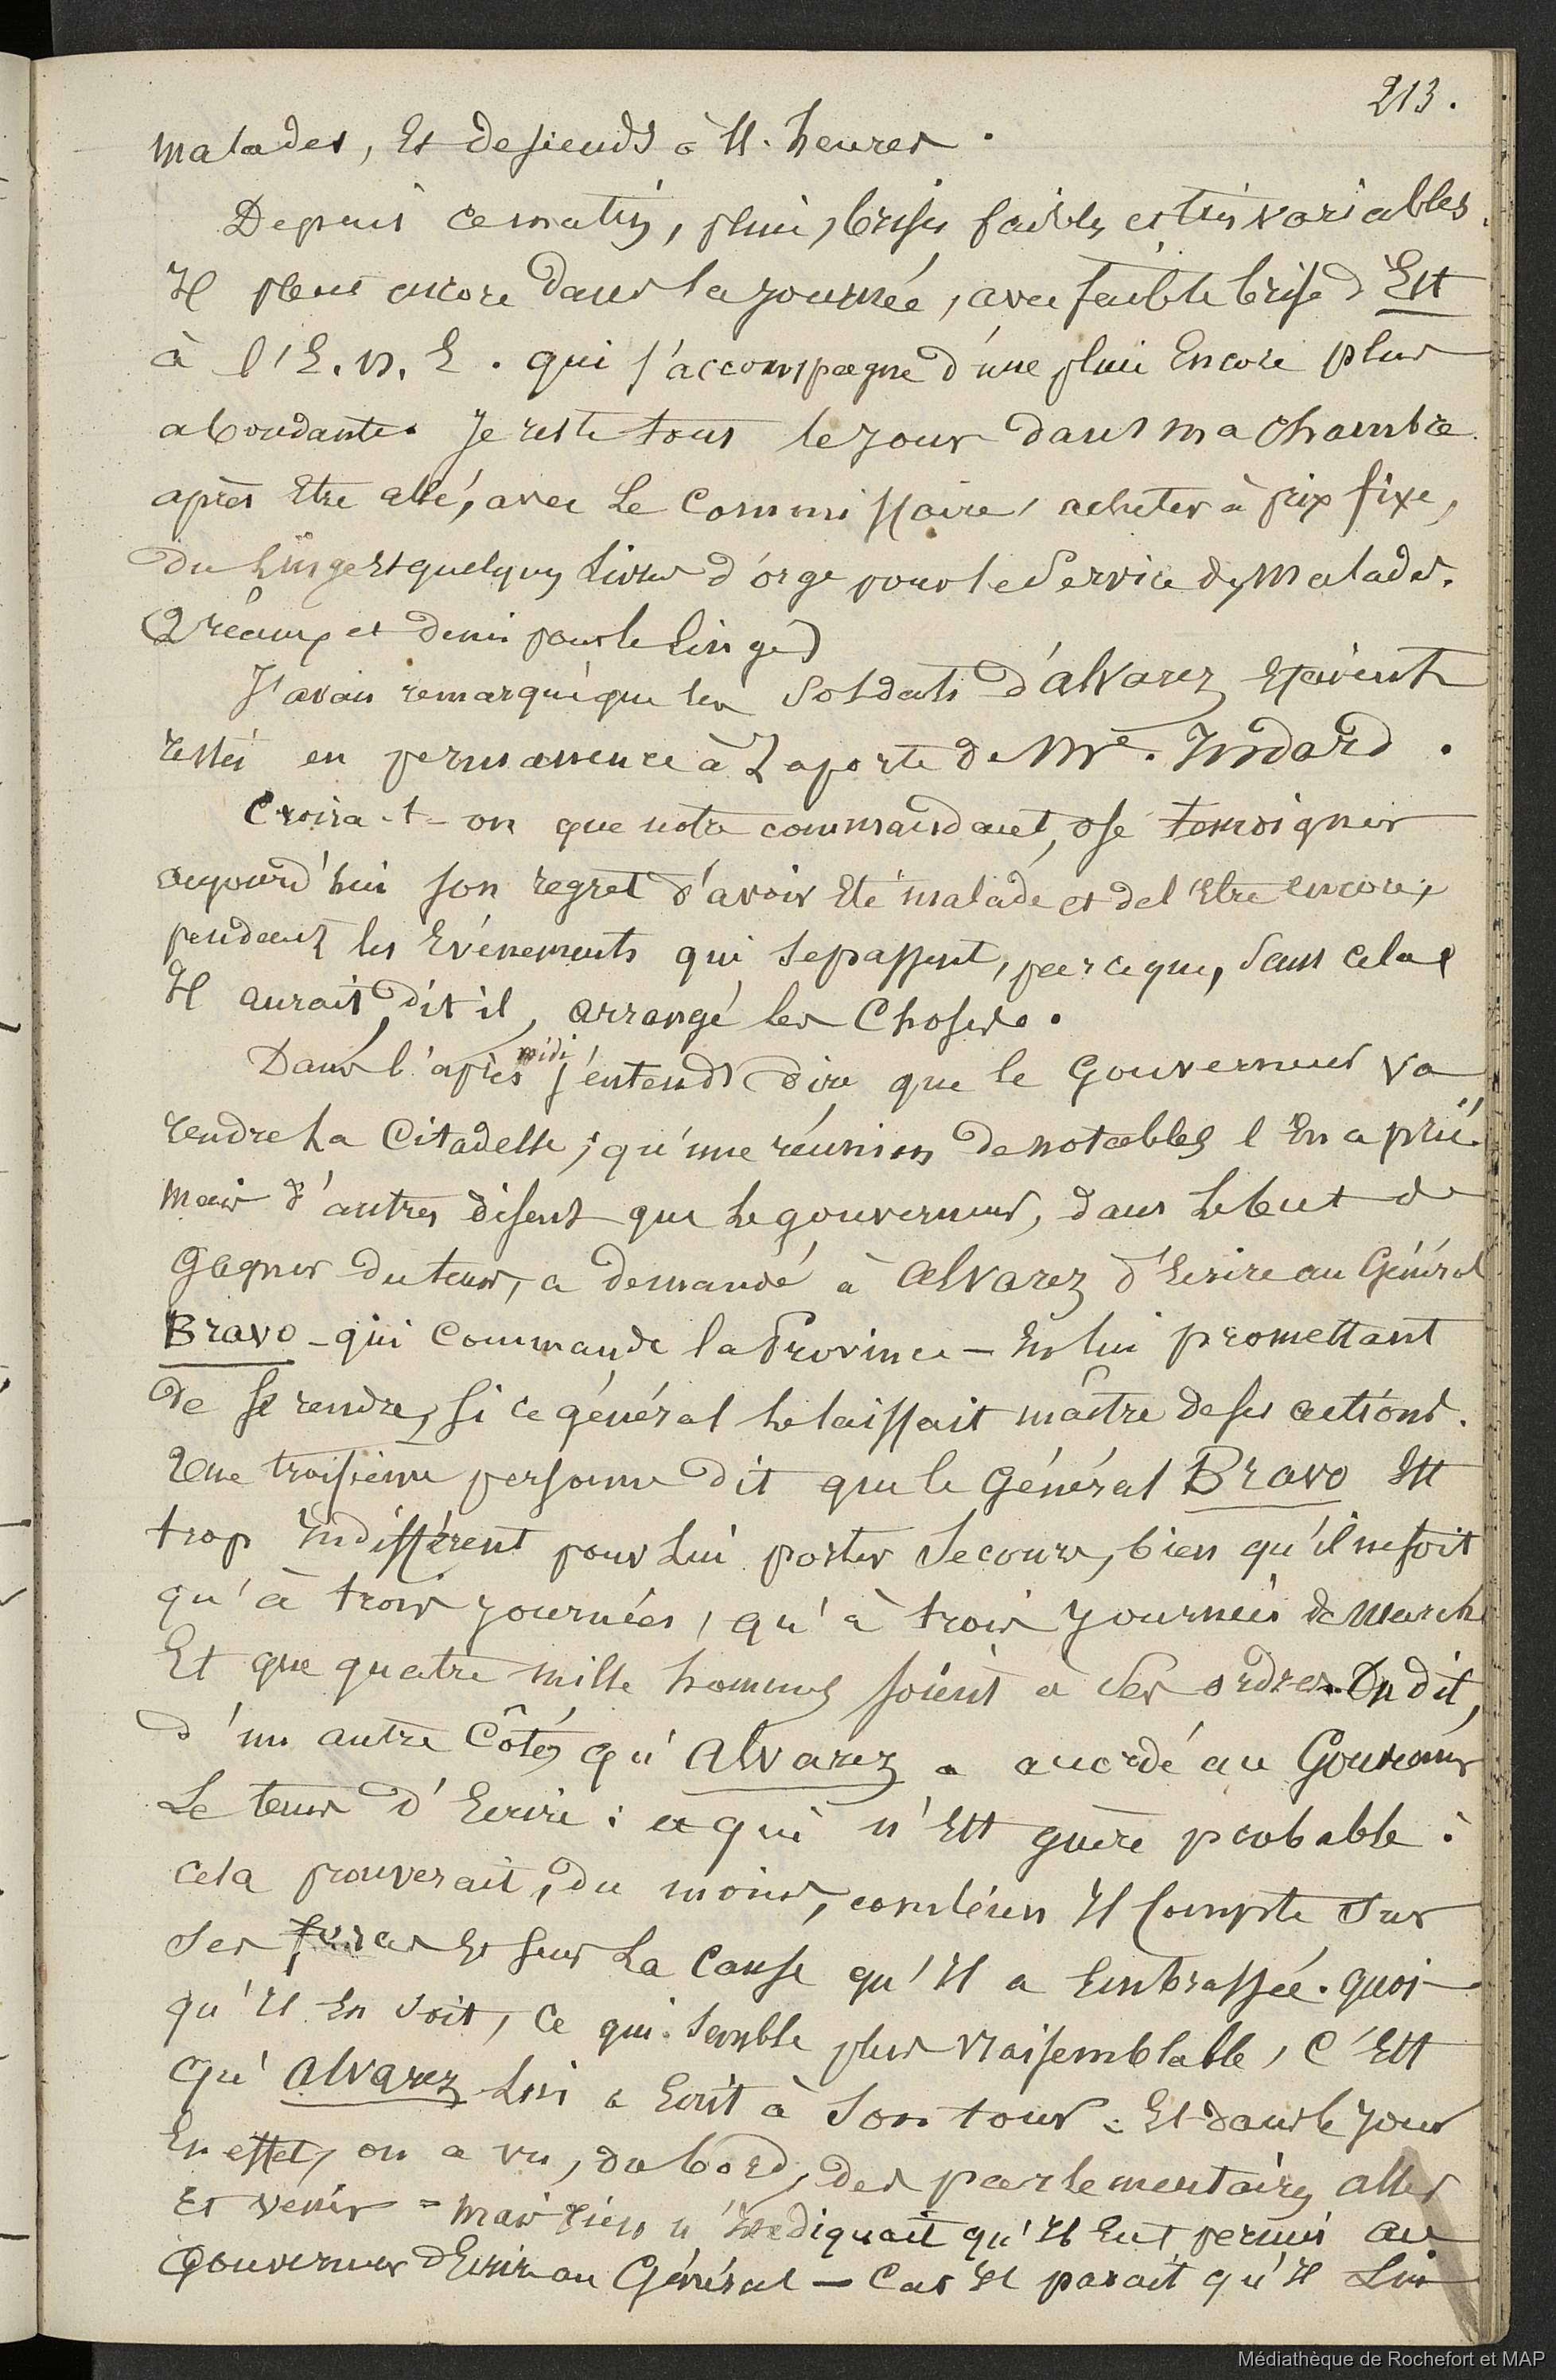 213.
malades, Et desiends à 11. heures.
Depuis ce matin, pluie, brises faibles et très variables.
Il pleut encore dans la journée, avec faible brise d'Est
à l'E. N. E. qui s'accompagne d'une pluie Encore plus
abondante. Je reste tout le jour dans ma chambre.
après Etre allé, avec Le Commissaire, acheter à prix fixe,
du Linge Et quelques Livres d'orge pour le Service des Malades.
(2 réaux et demi pour le Linge)
J'avais remarqué que les Soldats d'Alvarez Etaient
restés en permanence à La porte de Mr.
Croira-t-on que notre commandant, ose temoigner
aujourd'hui son regret d'avoir Eté malade et de l'Etre encore,
pendant les Evénements qui se passent, parce que, Sans cela
Il aurait, dit il, arrangé les Choses.
Dans l'après midi j'entends dire que le Gouverneur va
rendre La Citadelle; qu'une réunion de notables l'En a prié.
mais d'autres disent que Le gouverneur, dans Le but de
Gagner du tems, a demandé à Alvarez d'Ecrire au Général
Bravo - qui Commande la Province - En lui promettant
de se rendre, si ce général Le laissait maître de ses actions.
Une troisième personne dit que le Général Bravo Est
trop Indifférent pour Lui porter Secours, bien qu'il ne soit
qu'à trois journées, qu'à trois journées de Marche
Et que quatre mille hommes soient à Ses ordres. On dit,
d'un autre Côté, qu'Alvarez a accordé au Gouverneur
Le tems d'Ecrire: ce qui n'Est guère probable:
cela prouverait, du moins, combien Il Compte Sur
Ses forces Et sur La Cause qu'Il a Embrassée. quoi
qu'Il En Soit, Ce qui Semble plus vraisemblable, C'Est
qu'Alvarez Lui a Ecrit à Son tour: Et dans le jour
En effet, on a vu, du bord, des parlementaires aller
Et venir = mais rien n'Indiquait qu'Il Eut permis au
Gouverneur d'Ecrire au Général - Car Il parait qu'Il Lui
Médiathèque de Rochefort et MAP